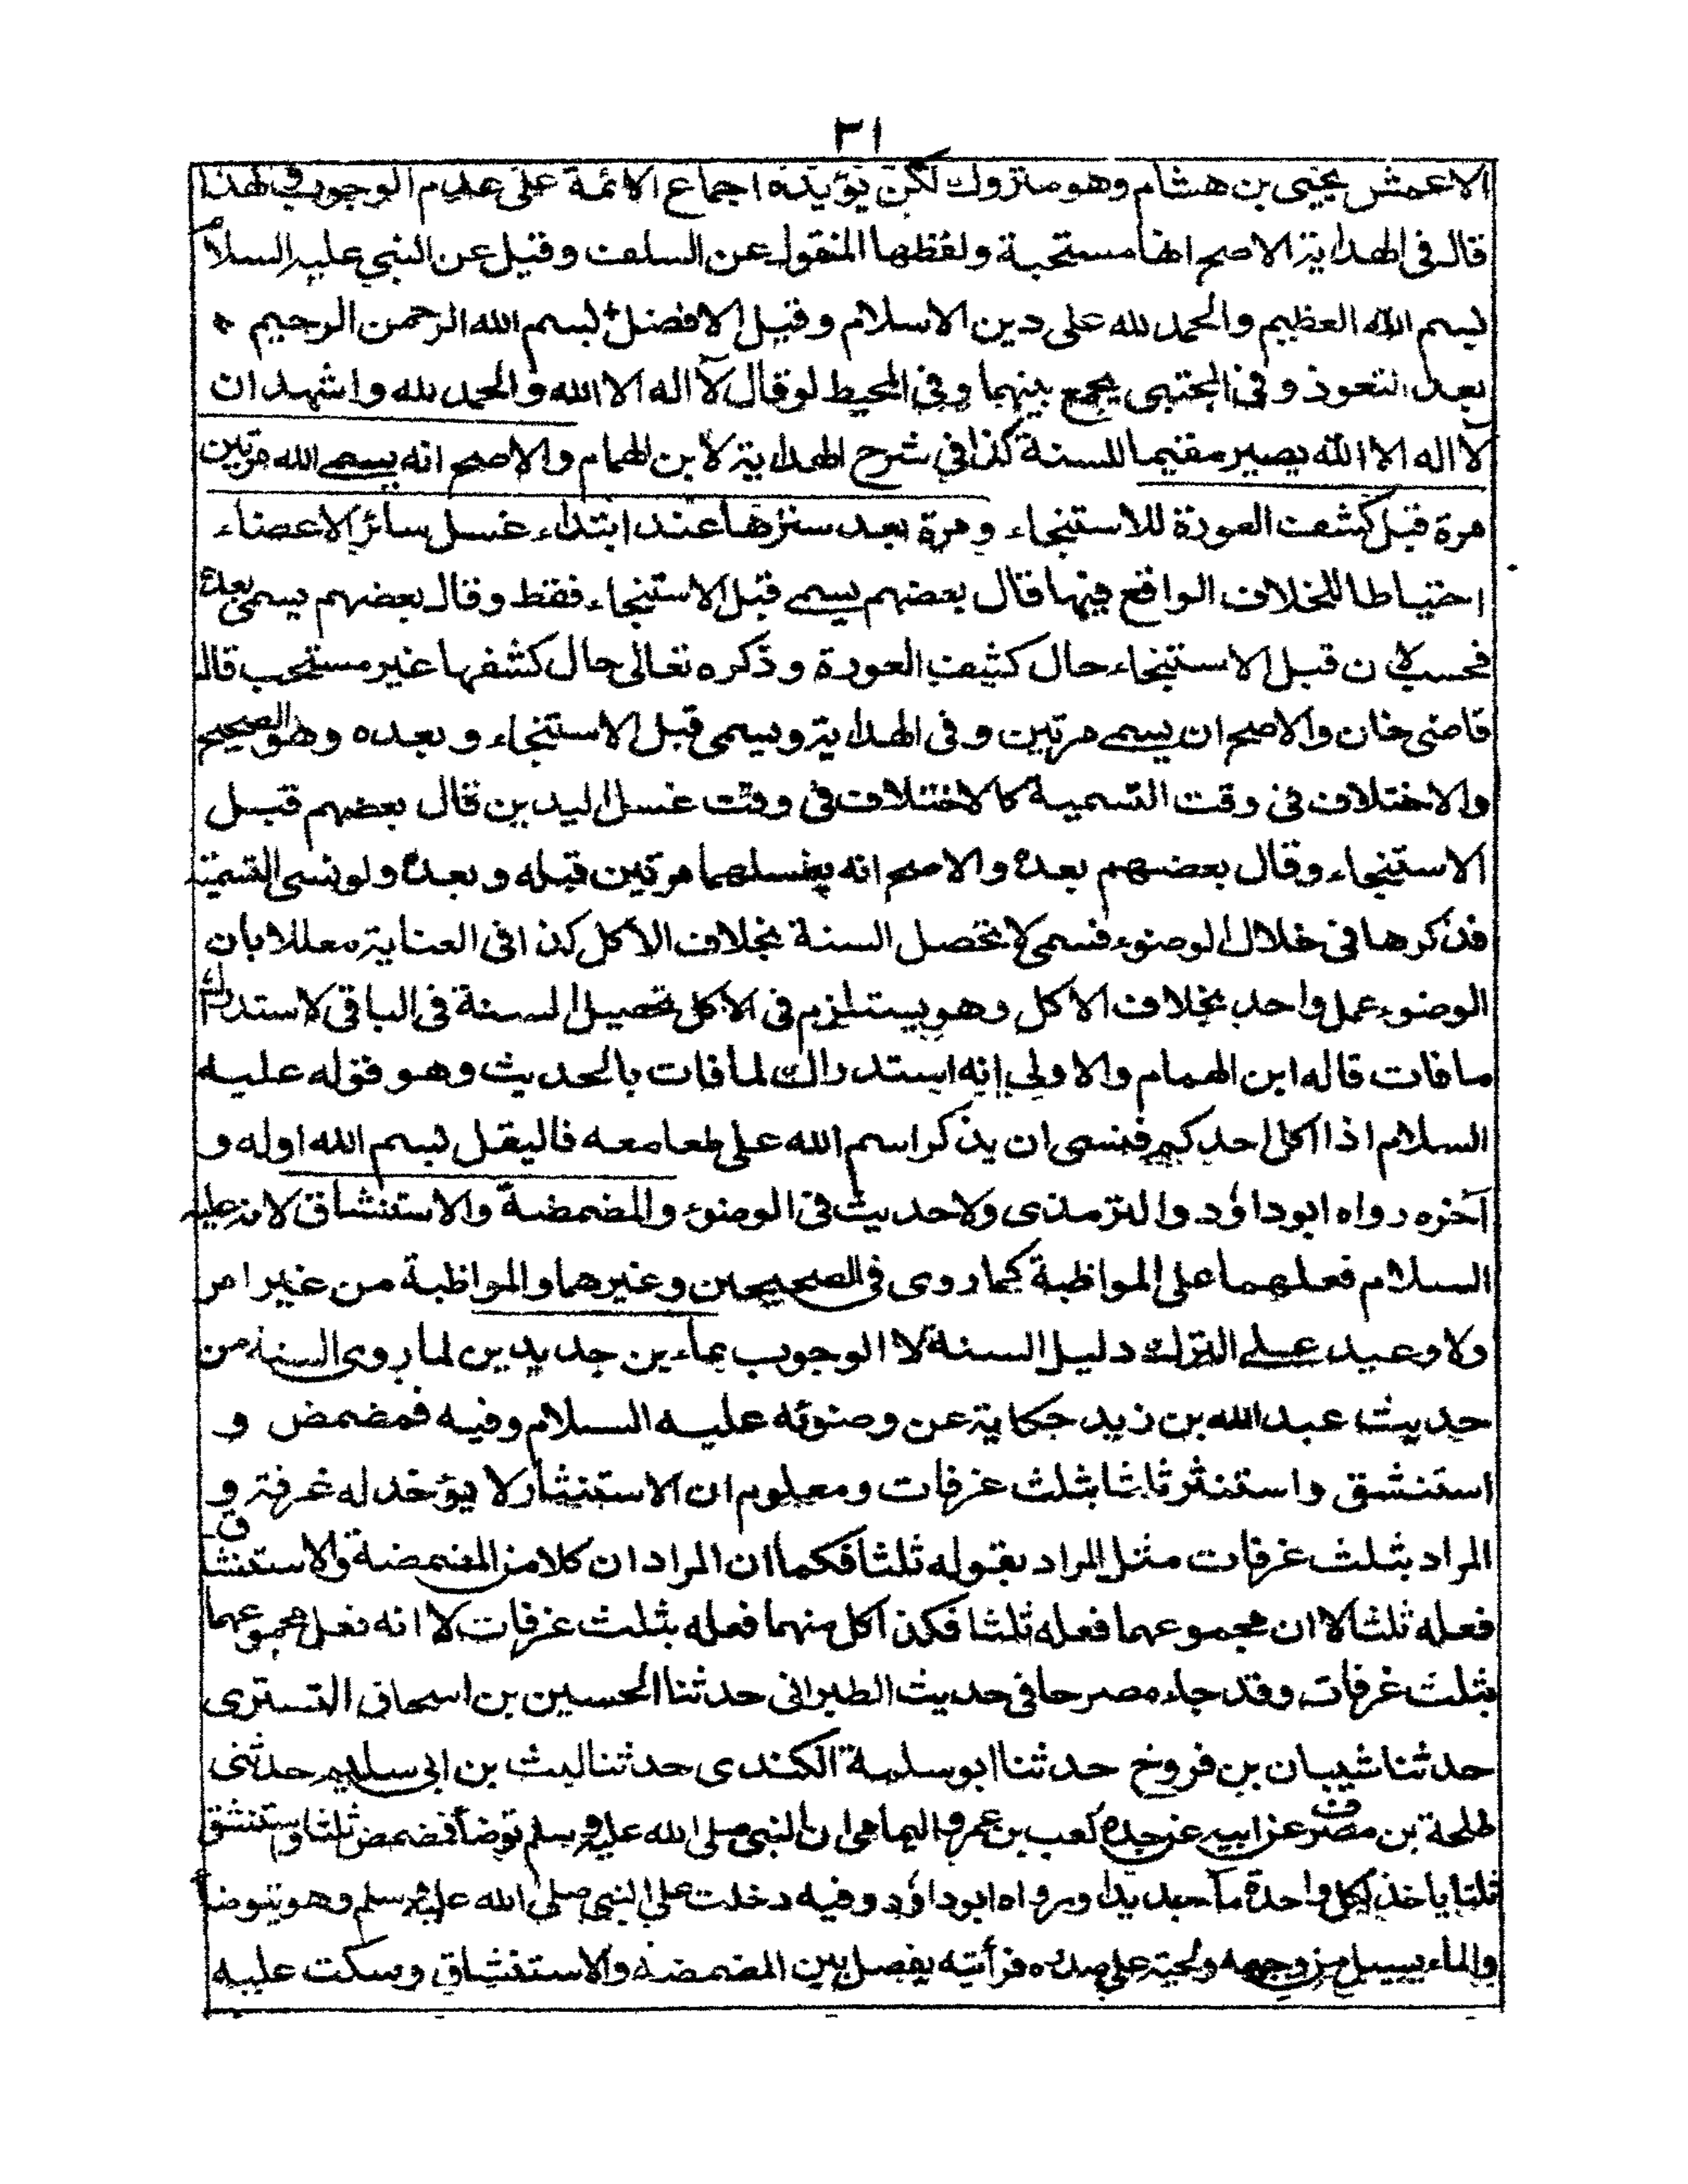 ٣١
الاعمش يحيى بن هشام وهو متروك لكن يؤيده اجماع الائمة على عدم الوجوب فى لهذا
قال فى الهداية الاصح انها مستحبة ولفظها المنقول عن السلف وقيل عن النبي عليه السلام
بسم الله العظيم والحمد لله على دين الاسلام وقيل الافضل بسم الله الرحمن الرحيم
بعد التعوذ وفى المجتبى يجمع بينهما وفى المحيط لو قال لآ اله الا الله والحمد لله واشهد ان
لآ اله الا الله يصير مقيما للسنة كذا فى شرح الهداية لابن الهمام والاصح انه يسمى الله مرتين
مرة قبل كشف العورة للاستنجاء ومرة بعد سترها عند ابتداء غسل سائر الاعضاء
احتياطا للخلاف الواقع فيها قال بعضهم يسمى قبل الاستنجاء فقط وقال بعضهم يسمى بعده
فحسب لان قبل الاستنجاء حال كشف العورة وذكره تعالى حال كشفها غير مستحب قال
قاضى خان والاصح ان يسمى مرتين وفى الهداية ويسمى قبل الاستنجاء وبعده وهو الصحيح
والاختلاف فى وقت التسمية كالاختلاف فى وقت غسل اليدين قال بعضهم قبل
الاستنجاء وقال بعضهم بعده والاصح انه يغسلهما مرتين قبله وبعده ولو نسى التسمية
فذكرها فى خلال الوضوء فسمى لا تحصل السنة بخلاف الاكل كذا فى العناية معللا بان
الوضوء عمل واحد بخلاف الاكل وهو يستلزم فى الاكل تحصيل السنة فى الباقى لا استدراك
ما فات قاله ابن الهمام والاولى انه استدراك لما فات بالحديث وهو قوله عليه
السلام اذا اكل احدكم فنسى ان يذكر اسم الله على طعامعه فاليقل بسم الله اوله و
آخره رواه ابو داؤد والترمذى ولا حديث فى الوضوء والمضمضة والاستنشاق لانه عليه
السلام فعلهما على المواظبة كما روى فى الصحيحين وغيرهما والمواظبة من غير امر
ولا وعيد على الترك دليل السنة لا الوجوب بماءين جديدين لما روى السنة من
حديث عبد الله بن زيد حكاية عن وضوئه عليه السلام وفيه فمضمض و
استنشق واستنثر ثلثا بثلث غرفات ومعلوم ان الاستنثار لا يؤخذ له غرفة و
المراد بثلث غرفات مثل المراد بقوله ثلثا فكما ان المراد ان كلا من المضمضة والاستنشاق
فعله ثلثا لا ان مجموعهما فعله ثلثا فكذا كل منهما فعله بثلث غرفات لا انه فعل مجموعهما
بثلث غرفات وقد جاء مصرحا فى حديث الطبرانى حدثنا الحسين بن اسحاق التسترى
حدثنا شيبان بن فروخ حدثنا ابو سلمة الكندى حدثنا ليث بن ابى سليم حدثنى
طلحة بن مصرف عن ابيه عن جده كعب بن عمرو اليمامى ان النبى صلى الله عليه وسلم توضأ فمضمض ثلثا واستنشق
ثلثا ياخذ لكل واحدة مآ جديدا ورواه ابو داؤد وفيه دخلت على النبى صلى الله عليه وسلم وهو يتوضأ
والماء يسيل من وجهه ولحيته على صدره فرأيته يفصل بين المضمضة والاستنشاق وسكت عليه